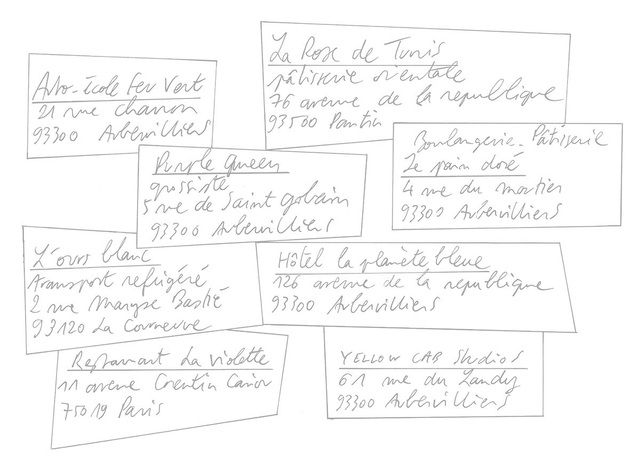 Auto-école Feu Vert
21 rue charron
93300 Aubervilliers
La Rose de Tunis
pâtisserie orientale
76 avenue de la republique
93500 Pantin
Boulangerie-Pâtisserie
Le pain doré
4 rue du moutier
93300 Aubervilliers
Purple Queen
grossiste
5 rue de Saint gobain
93300 Aubervilliers
L'ours blanc
transport refrigéré
2 rue Maryse Bastié
93120 La Courneuve
Hôtel la planète bleue
126 avenue de la republique
93300 Aubervilliers
Restaurant La violette
11 avenue Corentin Cariou
75019 Paris
YELLOW CAB Studios
61 rue du Landy
93300 Aubervilliers